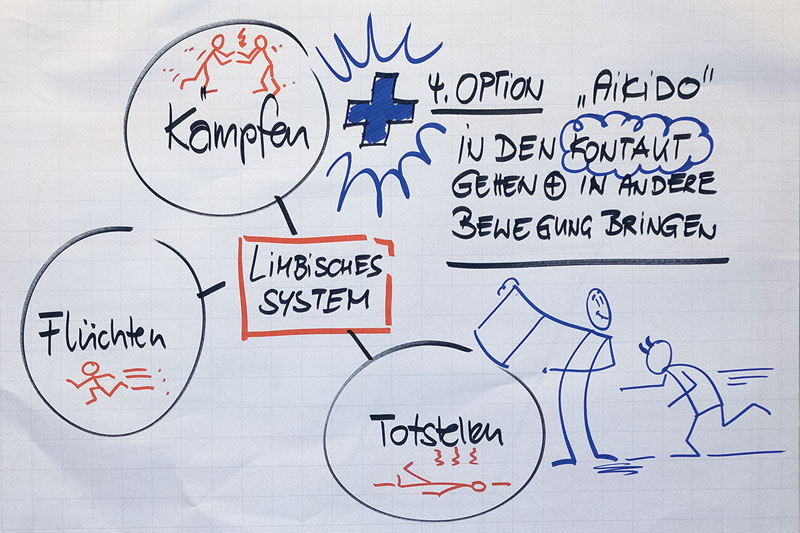 Kämpfen
4. OPTION „AIKIDO"
IN DEN KONTAKT
GEHEN ⊕ IN ANDERE
BEWEGUNG BRINGEN
LIMBISCHES
SYSTEM
Flüchten
Totstellen